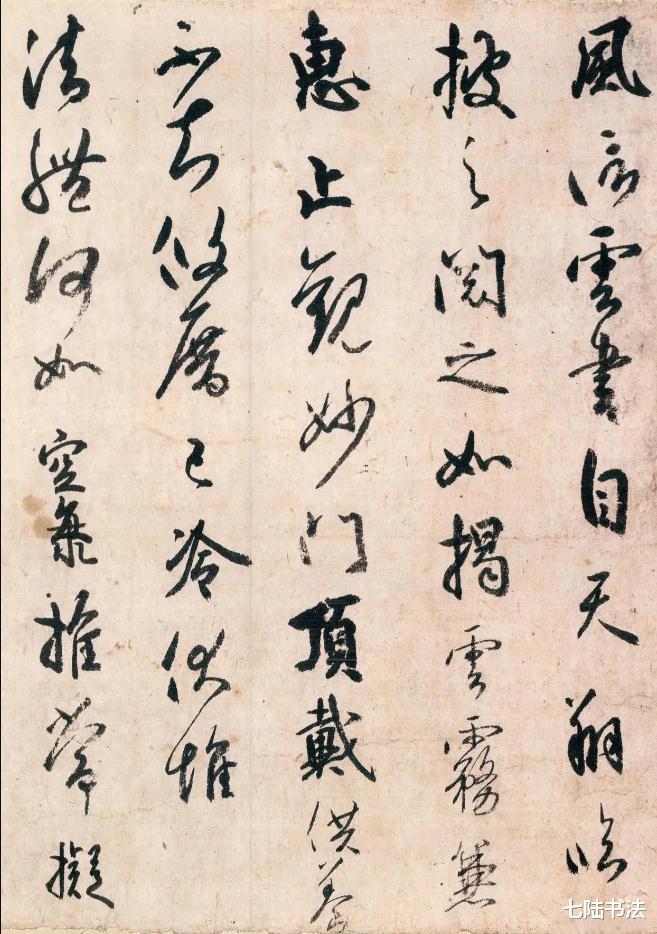 風信雲書自天翔臨
披之閱之如揭雲霧兼
惠止觀妙門頂戴供養
不知攸厝已冷伏惟
法體何如空海推常擬
七陆书法